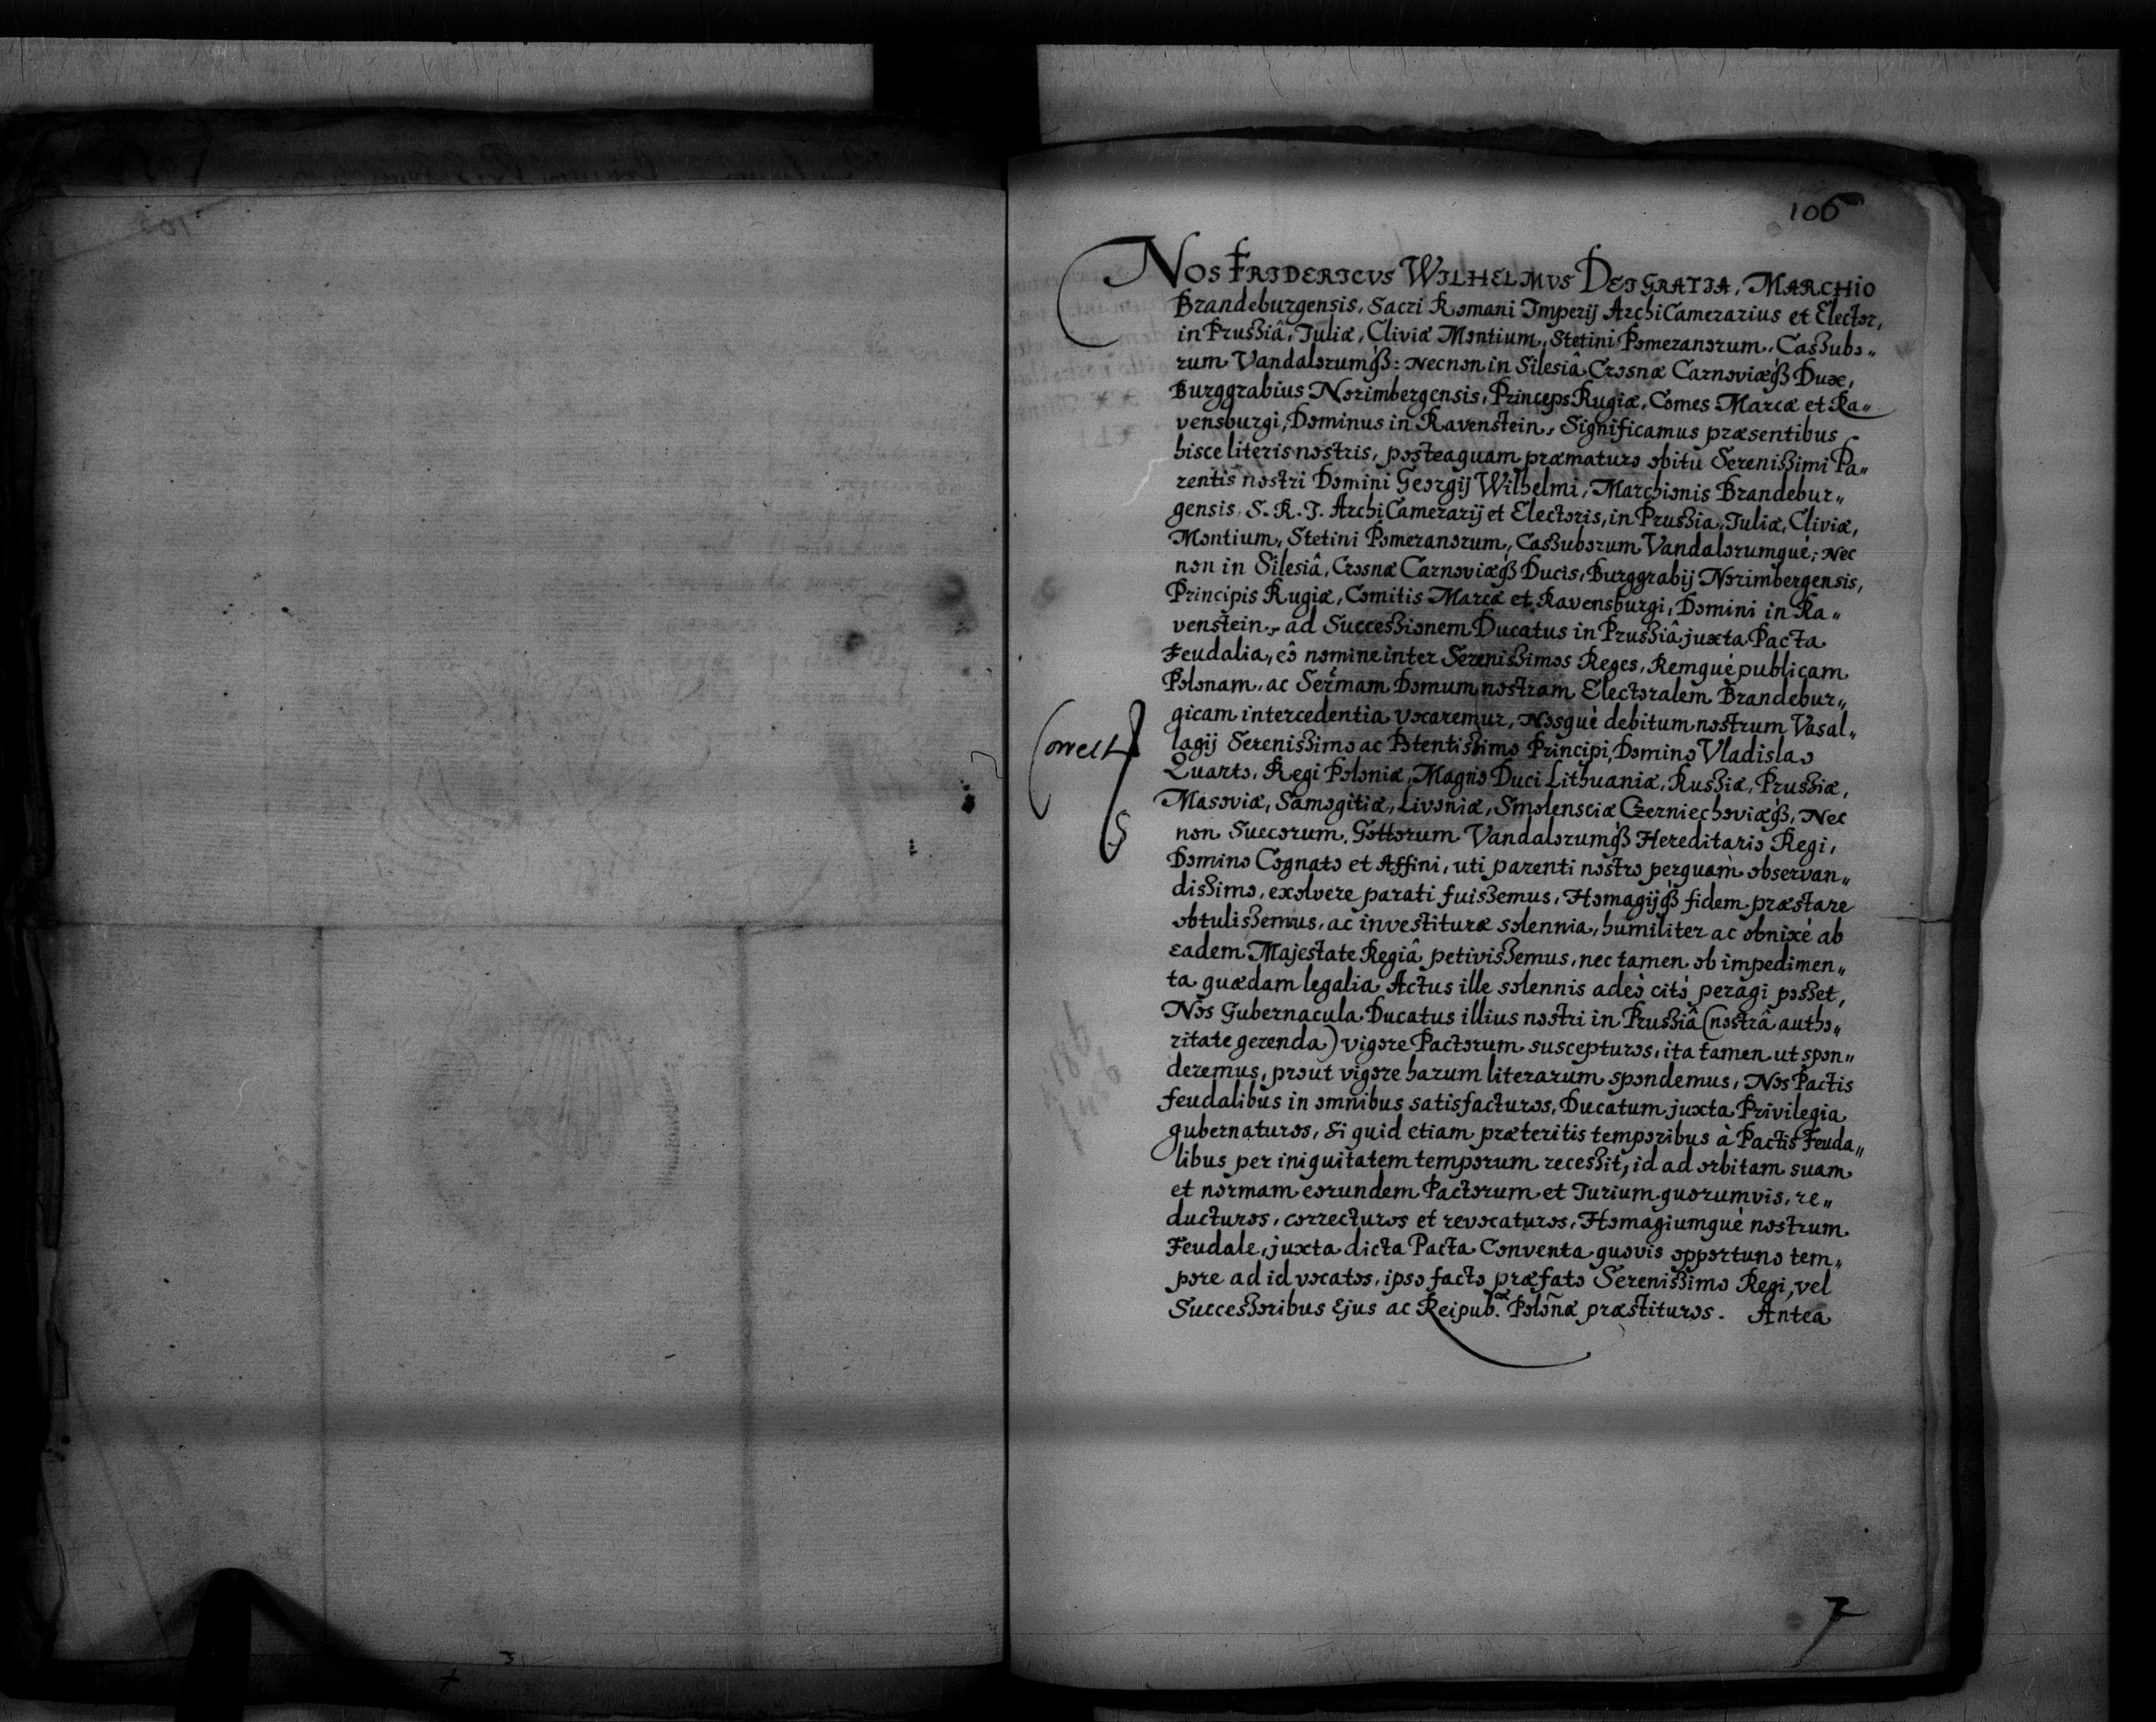 106
NOS FRIDERICVS WILHELMVS DEI GRATIA, MARCHIO
Brandeburgensis, Sacri Romani Imperij ArchiCamerarius et Elector,
in Prussiâ, Juliæ, Cliviæ Montium, Stetini Pomeranorum, Cassubo„
rum Vandalorumq́ȝ: Necnon in Silesiâ Crosnæ Carnoviæq́ȝ Dux,
Burggrabius Norimbergensis, Princeps Rugiæ, Comes Marcæ et Ra„
vensburgi, Dominus in Ravenstein, Significamus præsentibus
hisce literis nostris, posteaquam præmaturo obitu Serenissimi Pa„
rentis nostri Domini Georgij Wilhelmi, Marchionis Brandebur„
gensis, S. R. J. ArchiCamerarij et Electoris, in Prussia, Juliæ, Cliviæ,
Montium, Stetini Pomeranorum, Cassuborum Vandalorumqué; Nec
non in Silesiâ, Crosnæ Carnoviæq́ȝ Ducis, Burggrabij Norimbergensis,
Principis Rugiæ, Comitis Marcæ et Ravensburgi, Domini in Ra„
venstein, ad Successionem Ducatus in Prussiâ juxta Pacta
Feudalia, eô nomine inter Serenissimos Reges, Remqué publicam
Polonam, ac Serm̃am Domum nostram Electoralem Brandebur„
gicam intercedentia vocaremur, Nosqué debitum nostrum Vasal„
lagij Serenissimo ac Potentissimo Principi, Domino Vladislao
Quarto, Regi Poloniæ, Magno Duci Lithuaniæ, Russiæ, Prussiæ,
Masoviæ, Samogitiæ, Livoniæ, Smolensciæ Czerniechoviæq́ȝ, Nec
non Suecorum, Gottorum Vandalorumq́ȝ Hereditario Regi,
Domino Cognato et Affini, uti parenti nostro perquam observan„
dissimo, exolvere parati fuissemus, Homagijq́ȝ fidem præstare
obtulissemus, ac investituræ solennia, humiliter ac obnixé ab
eadem Majestate Regiâ petivissemus, nec tamen ob impedimen„
ta quædam legalia Actus ille solennis adeò citò peragi posset,
Nos Gubernacula Ducatus illius nostri in Prussiâ (nostrâ autho„
ritate gerenda) vigore Pactorum suscepturos, ita tamen ut spon„
deremus, prout vigore harum literarum spondemus, Nos Pactis
feudalibus in omnibus satisfacturos, Ducatum juxta Privilegia
gubernaturos, Si quid etiam præteritis temporibus à Pactis Feuda„
libus per iniquitatem temporum recessit, id ad orbitam suam
et normam eorundem Pactorum et Jurium quorumvis, re„
ducturos, correcturos et revocaturos, Homagiumqué nostrum
Feudale, juxta dicta Pacta Conventa quovis opportuno tem„
pore ad id vocatos, ipso facto præfato Serenissimo Regi, vel
Successoribus Ejus ac Reipub.æ Poloñæ præstituros. Antea